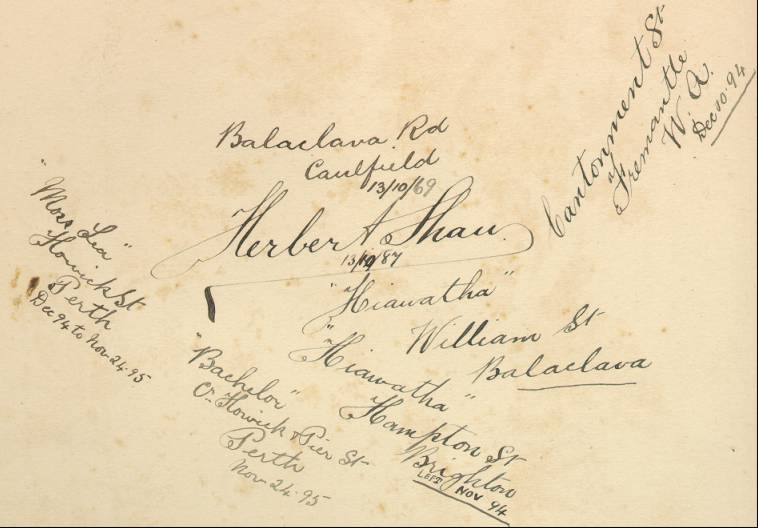 Balaclava Rd
Caulfield
13/10/69
Herbert Shaw.
13/10/87
"Hiawatha"
William St
Balaclava
"Hiawatha"
Hampton St
Brighton
LEFT NOV 94
Cantonment St
Fremantle
W. A.
Dec 10. 94
"Moss Lea"
Howick St
Perth
Dec 94 to Nov. 24. 95
"Bachelor"
Cr Howick & Pier St
Perth
Nov. 24. 95